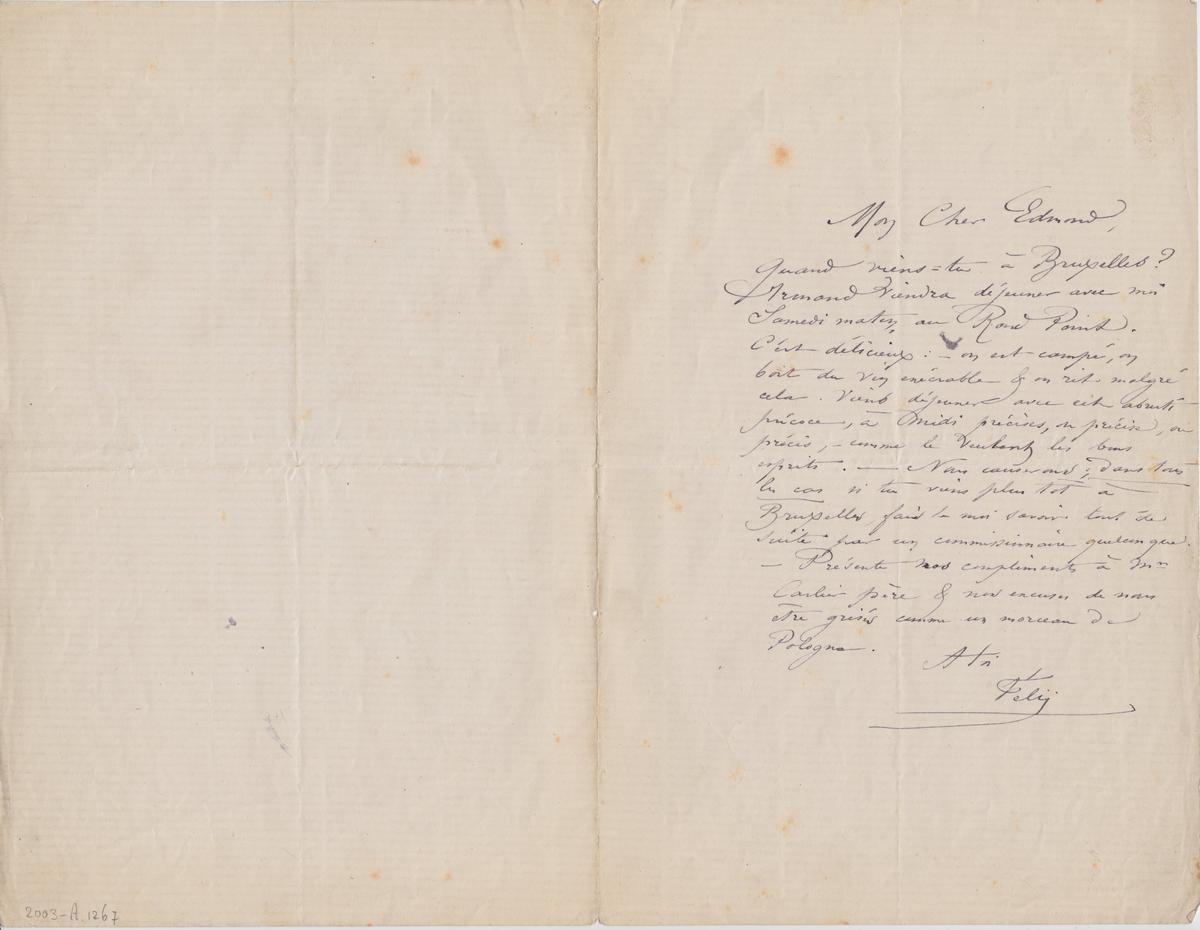 Mon Cher Edmond,
Quand viens=tu à Bruxelles?
Armand viendra déjeuner avec moi
Samedi matin, au Rond Point.
C'est délicieux: – on est campé, on
boit du vin exécrable & on rit malgré
cela. Viens déjeuner avec cet abruti
précoce, à midi précises, ou précise, ou
précis, – comme le veulent les bons
esprits. — Nous causerons; dans tous
les cas si tu viens plus tôt à
Bruxelles fais le moi savoir tout de
suite par un commissionnaire quelconque.
– Présente nos compliments à Mr
Carlier père & nos excuses de nous
être grisés comme un morceau de
Pologne.
A toi
Fély
2003-A.1267